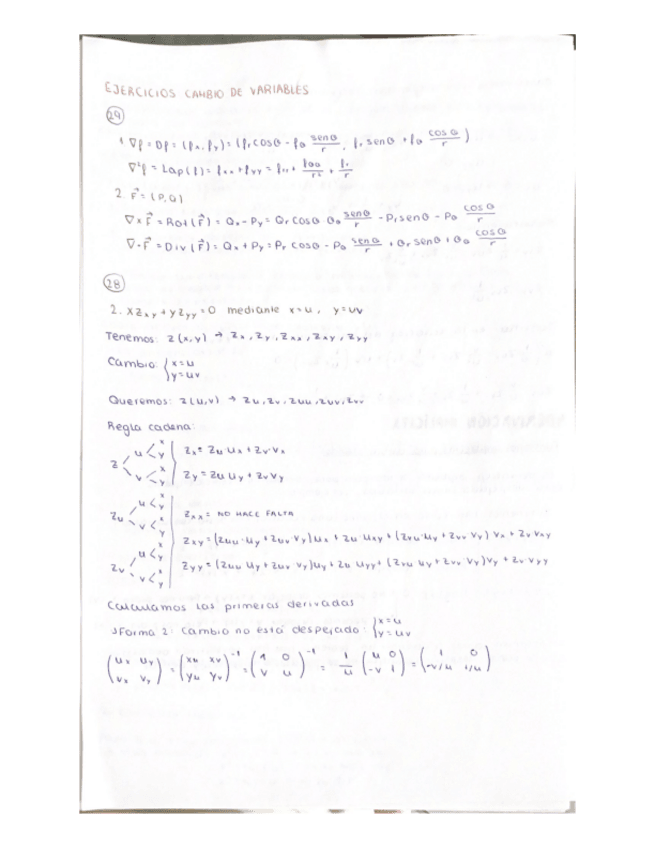 EJERCICIOS CAMBIO DE VARIABLES
29
1. ∇f = Df = (fx, fy) = (fr cosθ - fθ senθ/r, fr senθ + fθ cosθ/r)
∇²f = Lap(f) = fxx + fyy = frr + fθθ/r² + fr/r
2. F⃗ = (P,Q)
∇×F⃗ = Rot(F⃗) = Qx - Py = Qr cosθ Qθ senθ/r - Pr senθ - Pθ cosθ/r
∇·F⃗ = Div(F⃗) = Qx + Py = Pr cosθ - Pθ senθ/r + Qr senθ + Qθ cosθ/r
28
2. xZxy + yZyy = 0 mediante x=u, y=uv
Tenemos: z(x,y) → Zx, Zy, Zxx, Zxy, Zyy
Cambio: { x=u
y=uv
Queremos: z(u,v) → Zu, Zv, Zuu, Zuv, Zvv
Regla cadena:
z u x y v x y
Zx = Zu ux + Zv·vx
Zy = Zu uy + Zv vy
Zu u x y v x y
Zxx = NO HACE FALTA
Zxy = (Zuu·uy + Zuv vy) ux + Zu uxy + (Zvu·uy + Zvv vy) vx + Zv vxy
Zv u x y v x y
Zyy = (Zuu uy + Zuv vy) uy + Zu uyy + (Zvu uy + Zvv vy) vy + Zv·vyy
Calculamos las primeras derivadas
Forma 2: Cambio no está despejado: { x=u
y=uv
(ux uy / vx vy) = (xu xv / yu yv)⁻¹ = (1 0 / v u)⁻¹ = 1/u (u 0 / -v 1) = (1 0 / -v/u 1/u)